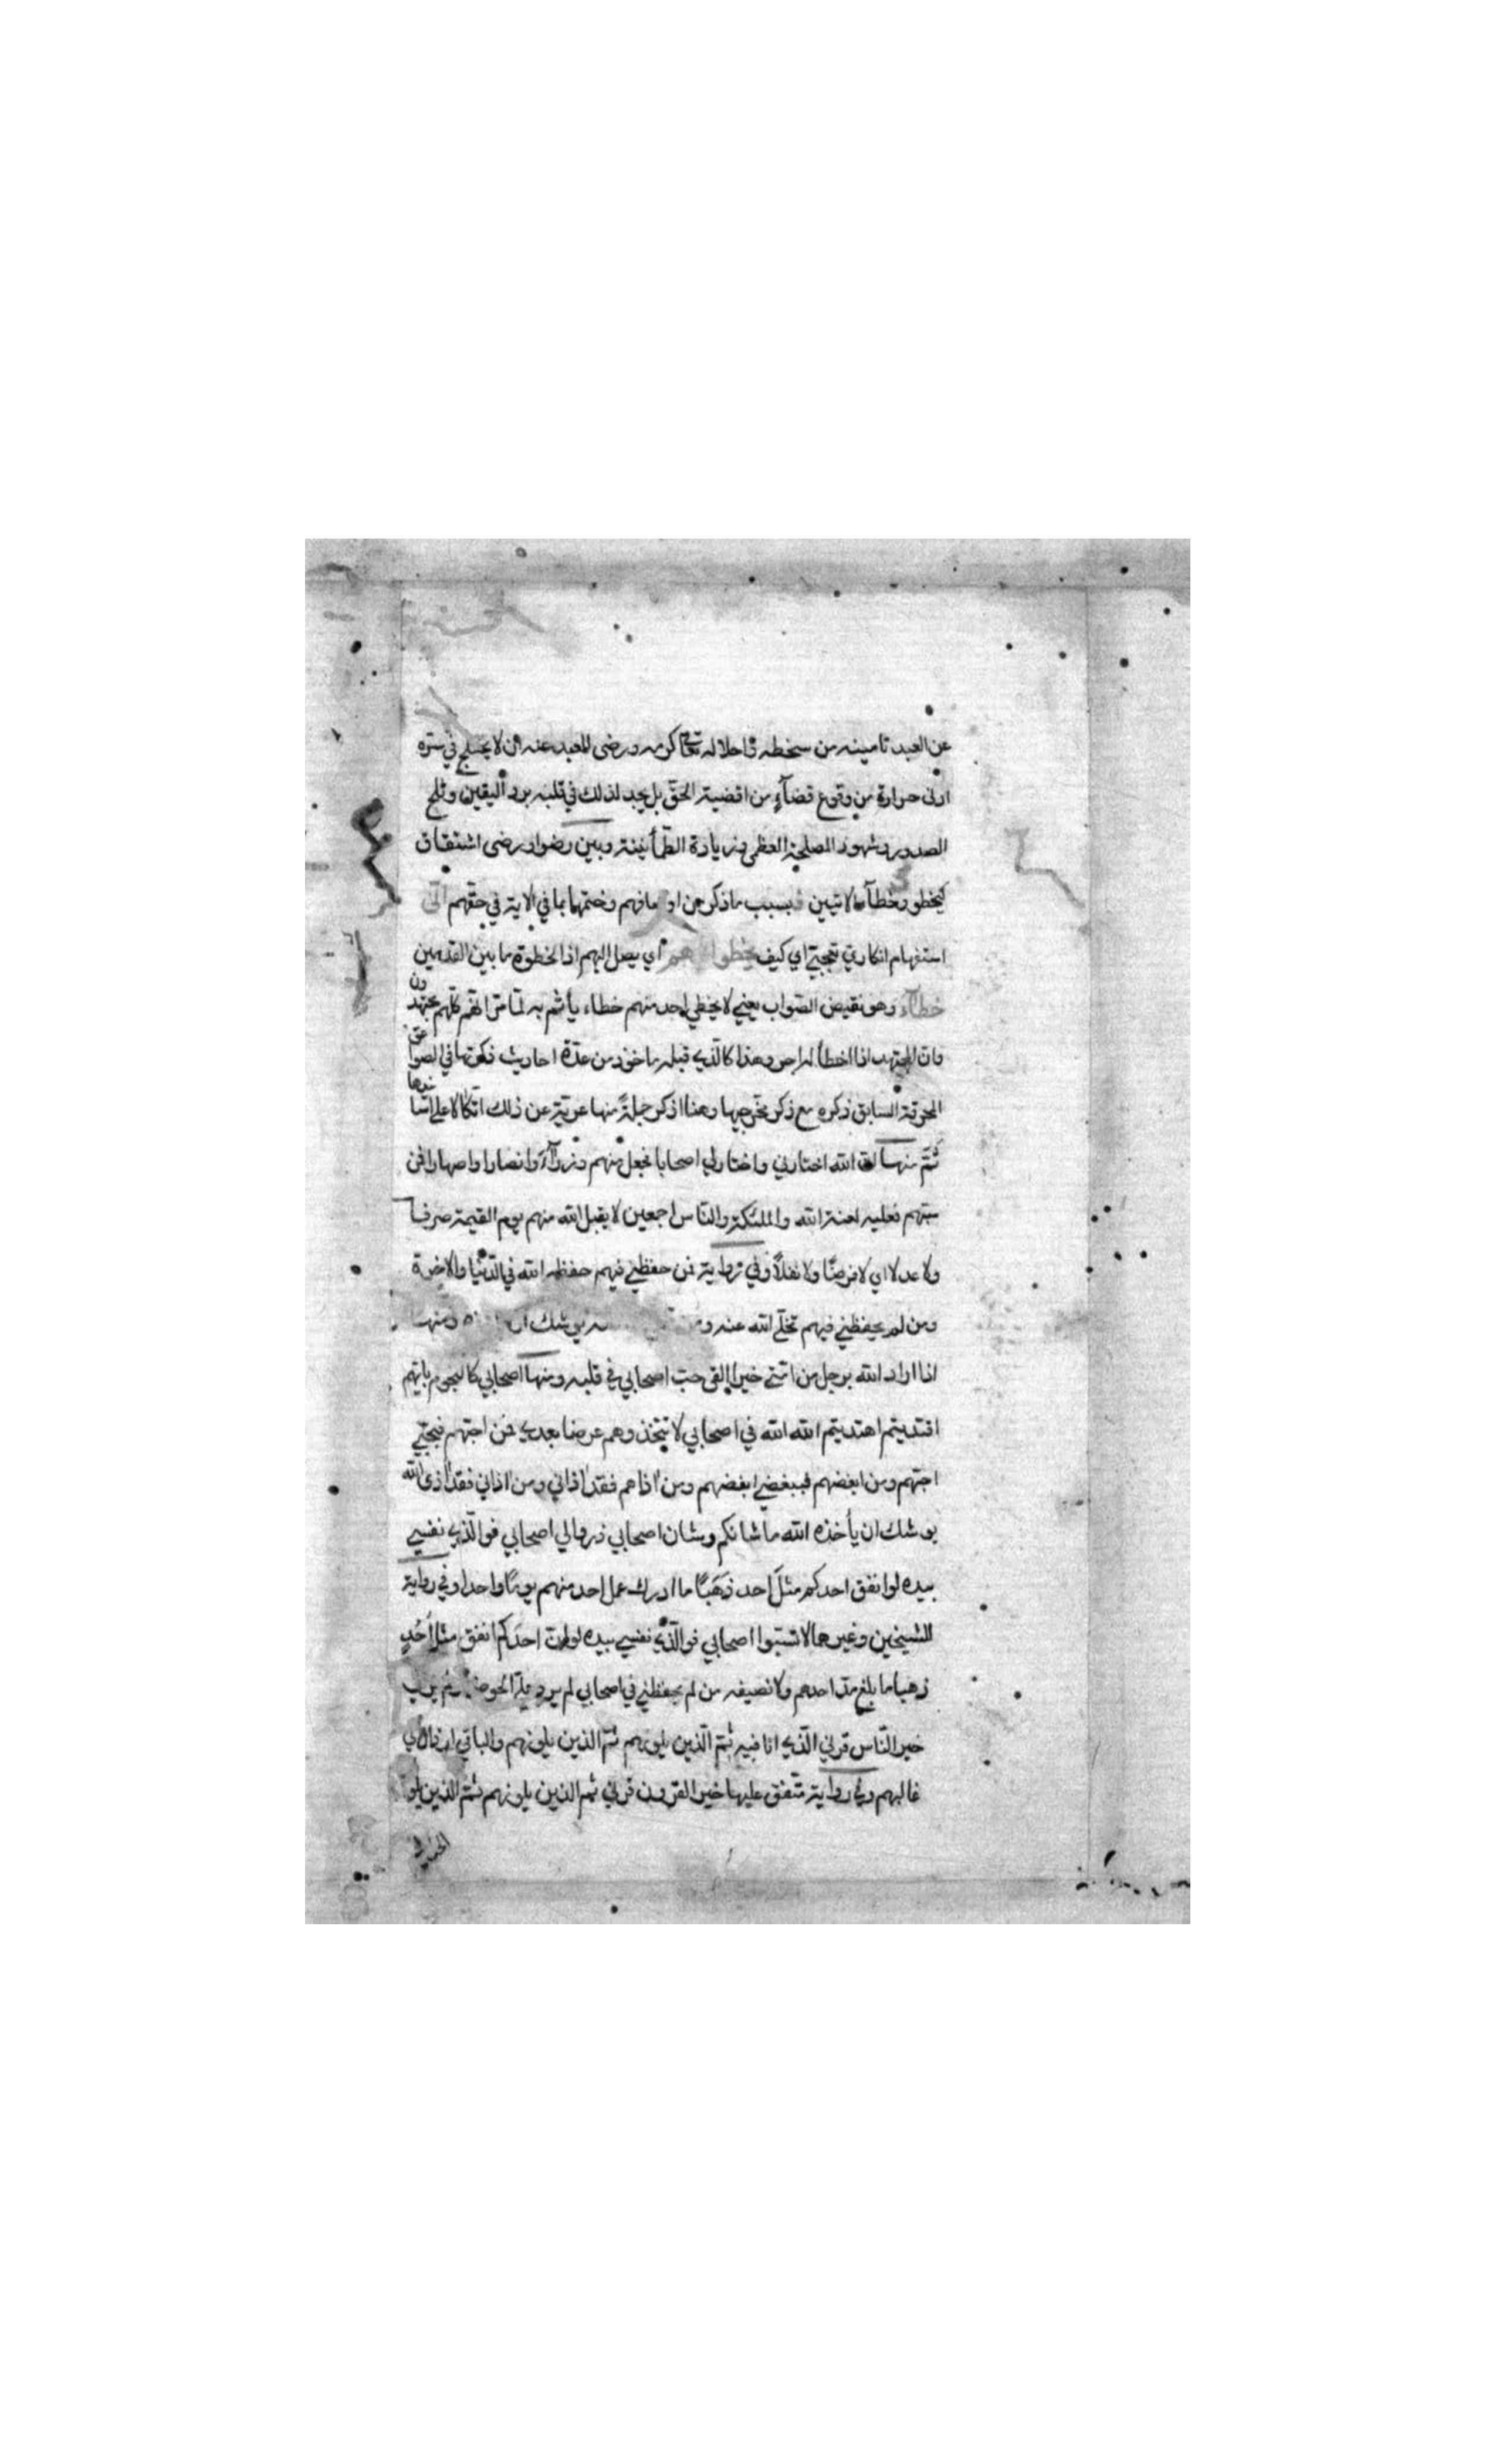 عن العبد تامينه من سخطه واحلاله تعالى كرمه ورضى العبد عنه ان لا يختلج في سره
ادنى حرارة من وقوع قضآء من اقضية الحق بل يجد لذلك في قلبه برد اليقين وثلج
الصدور وشهود المصلحة العظمى وزيادة الطمأنينة وبين رضوا ورضى اشتقاق
كيخطو وخطآ الاتيين بسبب ما ذكر من اوصافهم وختمها بما في الاية في حقهم انّى
استفهام انكاري تعجبي اي كيف يخطو اليهم اي يصل اليهم اذ الخطوة ما بين القدمين
خطآء وهو نقيض الصواب يعني لا يخطي احد منهم خطاء يأثم به لما مر انهم كلهم مجتهدون
فان المجتهد اذا اخطأ له اجر وهذا كالذي قبله ماخوذ من عدّة احاديث ذكرتها في الصواعق
المحرقة السابق ذكره مع ذكر مخرجيها وهنا اذكر جملةً منها عرية عن ذلك اتكالا على انها فيها
ثمّ منها ان الله اختارني واختار لي اصحابا فجعل منهم وزرآء وانصارا واصهارا فمن
سبهم فعليه لعنة الله والملئكة والناس اجمعين لا يقبل الله منهم يوم القيمة صرفا
ولا عدلا اي لا فرضًا ولا نفلًا وفي رواية فمن حفظني فيهم حفظه الله في الدنيا والاخرة
ومن لم يحفظني فيهم تخلى الله عنه ومن يوشك ان ومنها
اذا اراد الله برجل من امتي خيرا القى حبّ اصحابي في قلبه ومنها اصحابي كالنجوم بايهم
اقتديتم اهتديتم الله الله في اصحابي لا تتخذوهم عرضا بعدي فمن احبهم فبحبي
احبهم ومن ابغضهم فببغضي ابغضهم ومن اذاهم فقد اذاني ومن اذاني فقد اذى الله
يوشك ان يأخذه الله ما شانكم وشان اصحابي ذروا لي اصحابي فوالذي نفسي
بيده لو انفق احدكم مثل احد ذَهَبًا ما ادرك عمل احد منهم يومًا واحدا وفي رواية
للشيخين وغيرهما لا تسبوا اصحابي فوالذي نفسي بيده لو ان احدكم انفق مثل اُحُدٍ
ذهبا ما بلغ مدّ احدهم ولا نصيفه من لم يحفظني في اصحابي لم يرد عليّ الحوض ولم يرني
خير الناس قرني الذي انا فيه ثمّ الذين يلونهم ثمّ الذين يلونهم والباقي ارذال اي
غالبهم وفي رواية متفق عليها خير القرون قرني ثم الذين يلونهم ثمّ الذين يلو